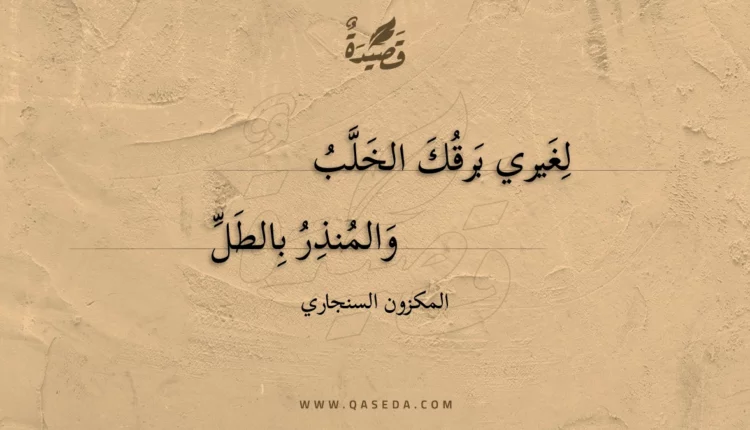 قَصِيْدَةٌ
لِغَيري بَرقُكَ الخَلَّبُ
وَالمُنذِرُ بِالطَلِّ
المكزون السنجاري
WWW.QASEDA.COM